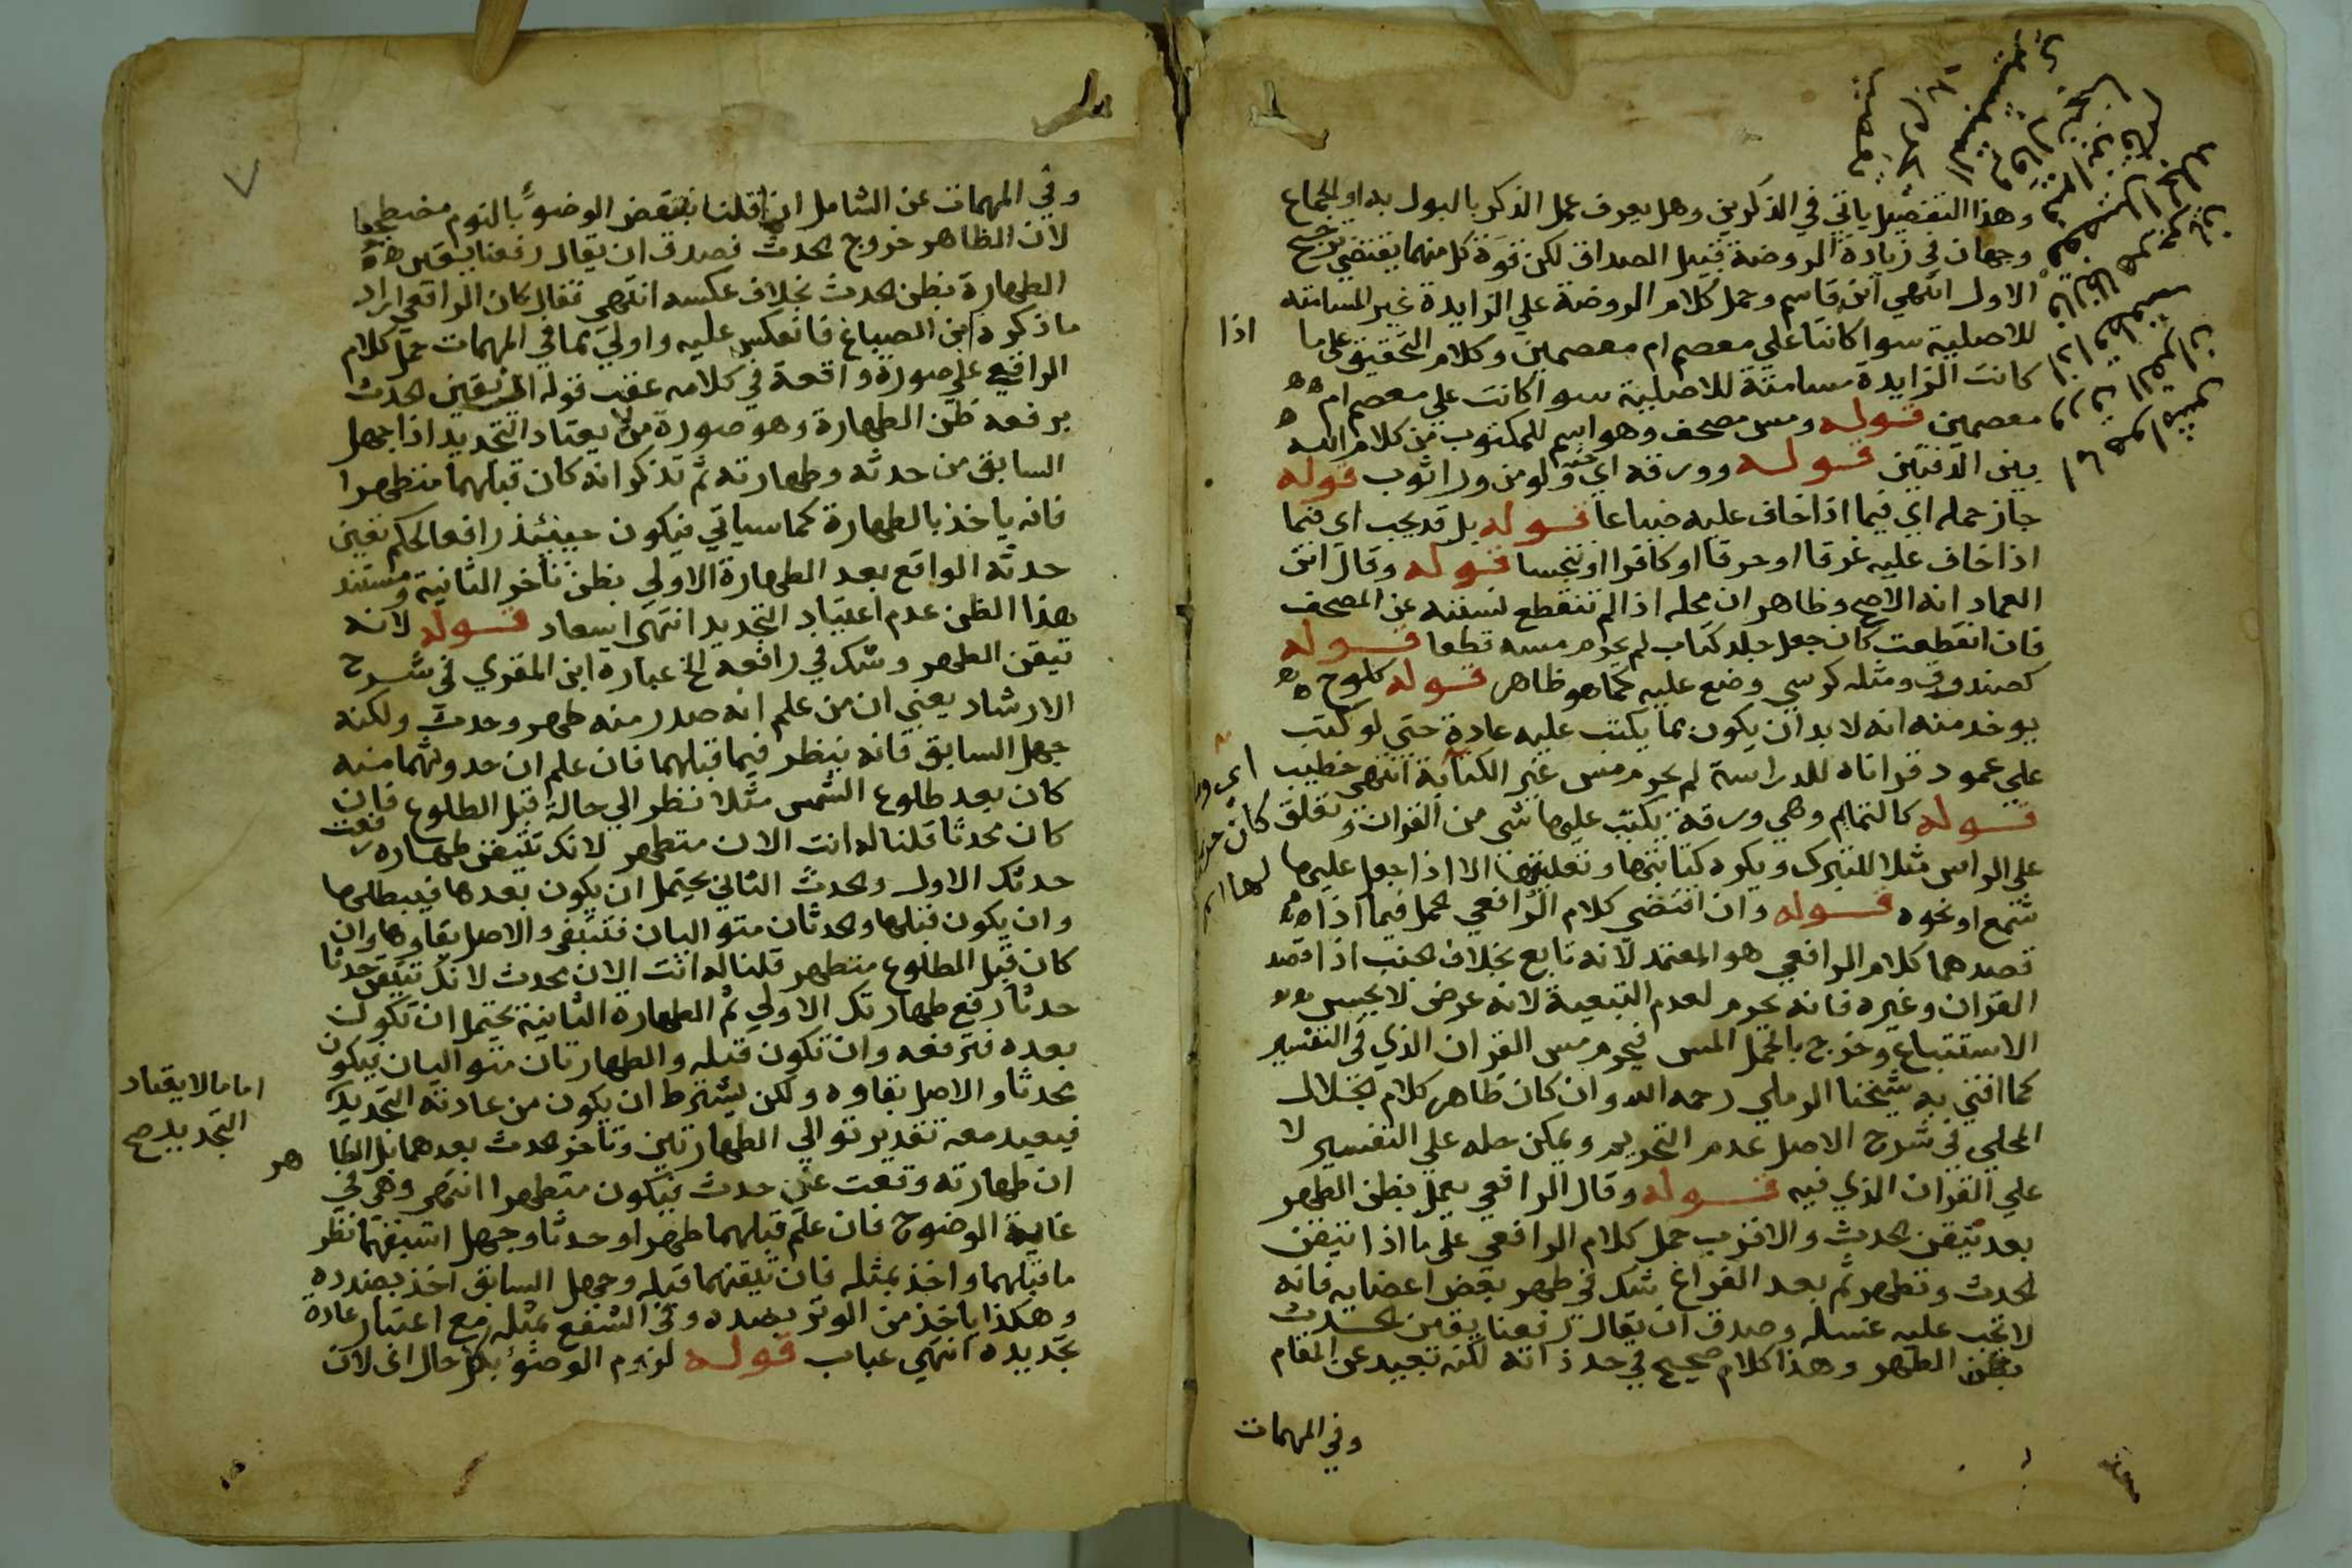 وهذا التفصيل ياتي في الذكرين وهل يعرف عمل الذكر بالبول به او الجماع
وجهان في زيادة الروضة قبيل الصداق لكن قوة كل منهما يقتضي ترجيح
الاول انتهي ابن قاسم وحمل كلام الروضة علي الزايدة غير المسامته
للاصلية سوا كانتا علي معصم ام معصمين وكلام التحقيق علي ما اذا
كانت الزايدة مسامتة للاصلية سوا كانت علي معصم ام
معصمين قوله ومس مصحف وهو اسم للمكتوب من كلام الله
بين الدفتين قوله وورقه اي ولو من ورا ثوب قوله
جاز حمله اي فيما اذا خاف عليه ضياعا قوله بل قد يجب اي فيما
اذا خاف عليه غرقا او حرقا او كافرا او تنجسا قوله وقال ابن
العماد انه الاصح وظاهر ان محله اذا لم تنقطع نسبته عن المصحف
فان انقطعت كان جعل جلد كتاب لم يحرم مسه قطعا قوله
كصندوق ومثله كرسي وضع عليه كما هو ظاهر قوله كلوح
يوخد منه انه لا بد ان يكون مما يكتب عليه عادة حتي لو كتب
علي عمود قرانا للدراسة لم يحرم مس غير الكتابة انتهي خطيب
قوله كالتمايم وهي ورقة يكتب عليها شي من القران وتعلق
علي الراس مثلا للتبرك ويكره كتابتها وتعليقها الا اذا جعل عليها
شمع او نحوه قوله وان اقتضي كلام الرافعي الحمل فيما اذا
قصدهما كلام الرافعي هو المعتمد لانه تابع بخلاف الجنب اذا قصد
القران وغيره فانه يحرم لعدم التبعية لانه عرض لا يحبس
الاستتباع وخرج بالحمل المس فيحرم مس القران الذي في التفسير
كما افتي به شيخنا الرملي رحمه الله وان كان ظاهر كلام الجلال
المحلي في شرح الاصل عدم التحريم ويمكن حمله علي التفسير لا
علي القران الذي فيه قوله وقال الرافعي يعمل بظن الطهر
بعد تيقن الحدث والاقرب حمل كلام الرافعي علي ما اذا تيقن
الحدث وتطهر ثم بعد الفراغ شك في طهر بعض اعضايه فانه
لا تجب عليه غسله وصدق ان يقال رفعنا يقين الحدث
بظن الطهر وهذا كلام صحيح في حد ذاته لكنه بعيد عن المقام
وفي المهمات
وفي المهمات عن الشامل انا قلنا بنقض الوضوء بالنوم مضطجعا
لان الظاهر خروج الحدث فصدق ان يقال رفعنا بيقين
الطهارة بظن الحدث بخلاف عكسه انتهي فقال كان الرافعي اراد
ما ذكره ابن الصباغ فانعكس عليه واولي مما في المهمات حمل كلام
الرافعي علي صورة واقعة في كلامه عقب قوله ان يقين الحدث
يرفعه ظن الطهارة وهو صورة من لا يعتاد التجديد اذا جهل
السابق من حدثه وطهارته ثم تذكر انه كان قبلهما متطهرا
فانه ياخذ بالطهارة كما سياتي فيكون حينئذ رافعا لحكم يقين
حدثه الواقع بعد الطهارة الاولي بظن تاخر الثانية ومستند
هذا الظن عدم اعتياد التجديد انتهي ايعاد قوله لانه
تيقن الطهر وشك في رافعه الخ عبارة ابن المقري في شرح
الارشاد يعني ان من علم انه صدر منه طهر وحدث ولكنه
جهل السابق فانه ينظر فيما قبلهما فان علم ان حدوثهما منه
كان بعد طلوع الشمس مثلا نظر الي حالة قبل الطلوع فان
كان محدثا قلنا له انت الان متطهر لانك تتيقن طهارة رفعت
حدثك الاول والحدث الثاني يحتمل ان يكون بعدها فيبطلها
وان يكون قبلها والحدثان متواليان فتبقي والاصل بقاوها وان
كان قبل الطلوع متطهر قلنا له انت الان محدث لانك تتيقن حدثا
حدثا رفع طهارتك الاولي ثم الطهارة الثانية يحتمل ان تكون
بعده فترفعه وان تكون قبله والطهارتان متواليان فيكون
محدثا والاصل بقاوه ولكن يشترط ان يكون من عادته التجديد
اما ما لا يعتاد
التجديد صح
فيعيد معه تقدير توالي الطهارتين وتاخر الحدث بعدهما بل الظاهر
ان طهارته وقعت عن حدث فيكون متطهرا انتهي وهي في
غاية الوضوح فان علم قبلهما طهرا وحدثا وجهل اسبقهما نظر
ما قبلهما واخذ بمثله فان تيقنهما قبله وجهل السابق اخذ بضده
وهكذا ياخذ من الوتر بضده وفي الشفع بمثله مع اعتبار عادة
تجديده انتهي عباب قوله لزم الوضوء بكل حال اي لان